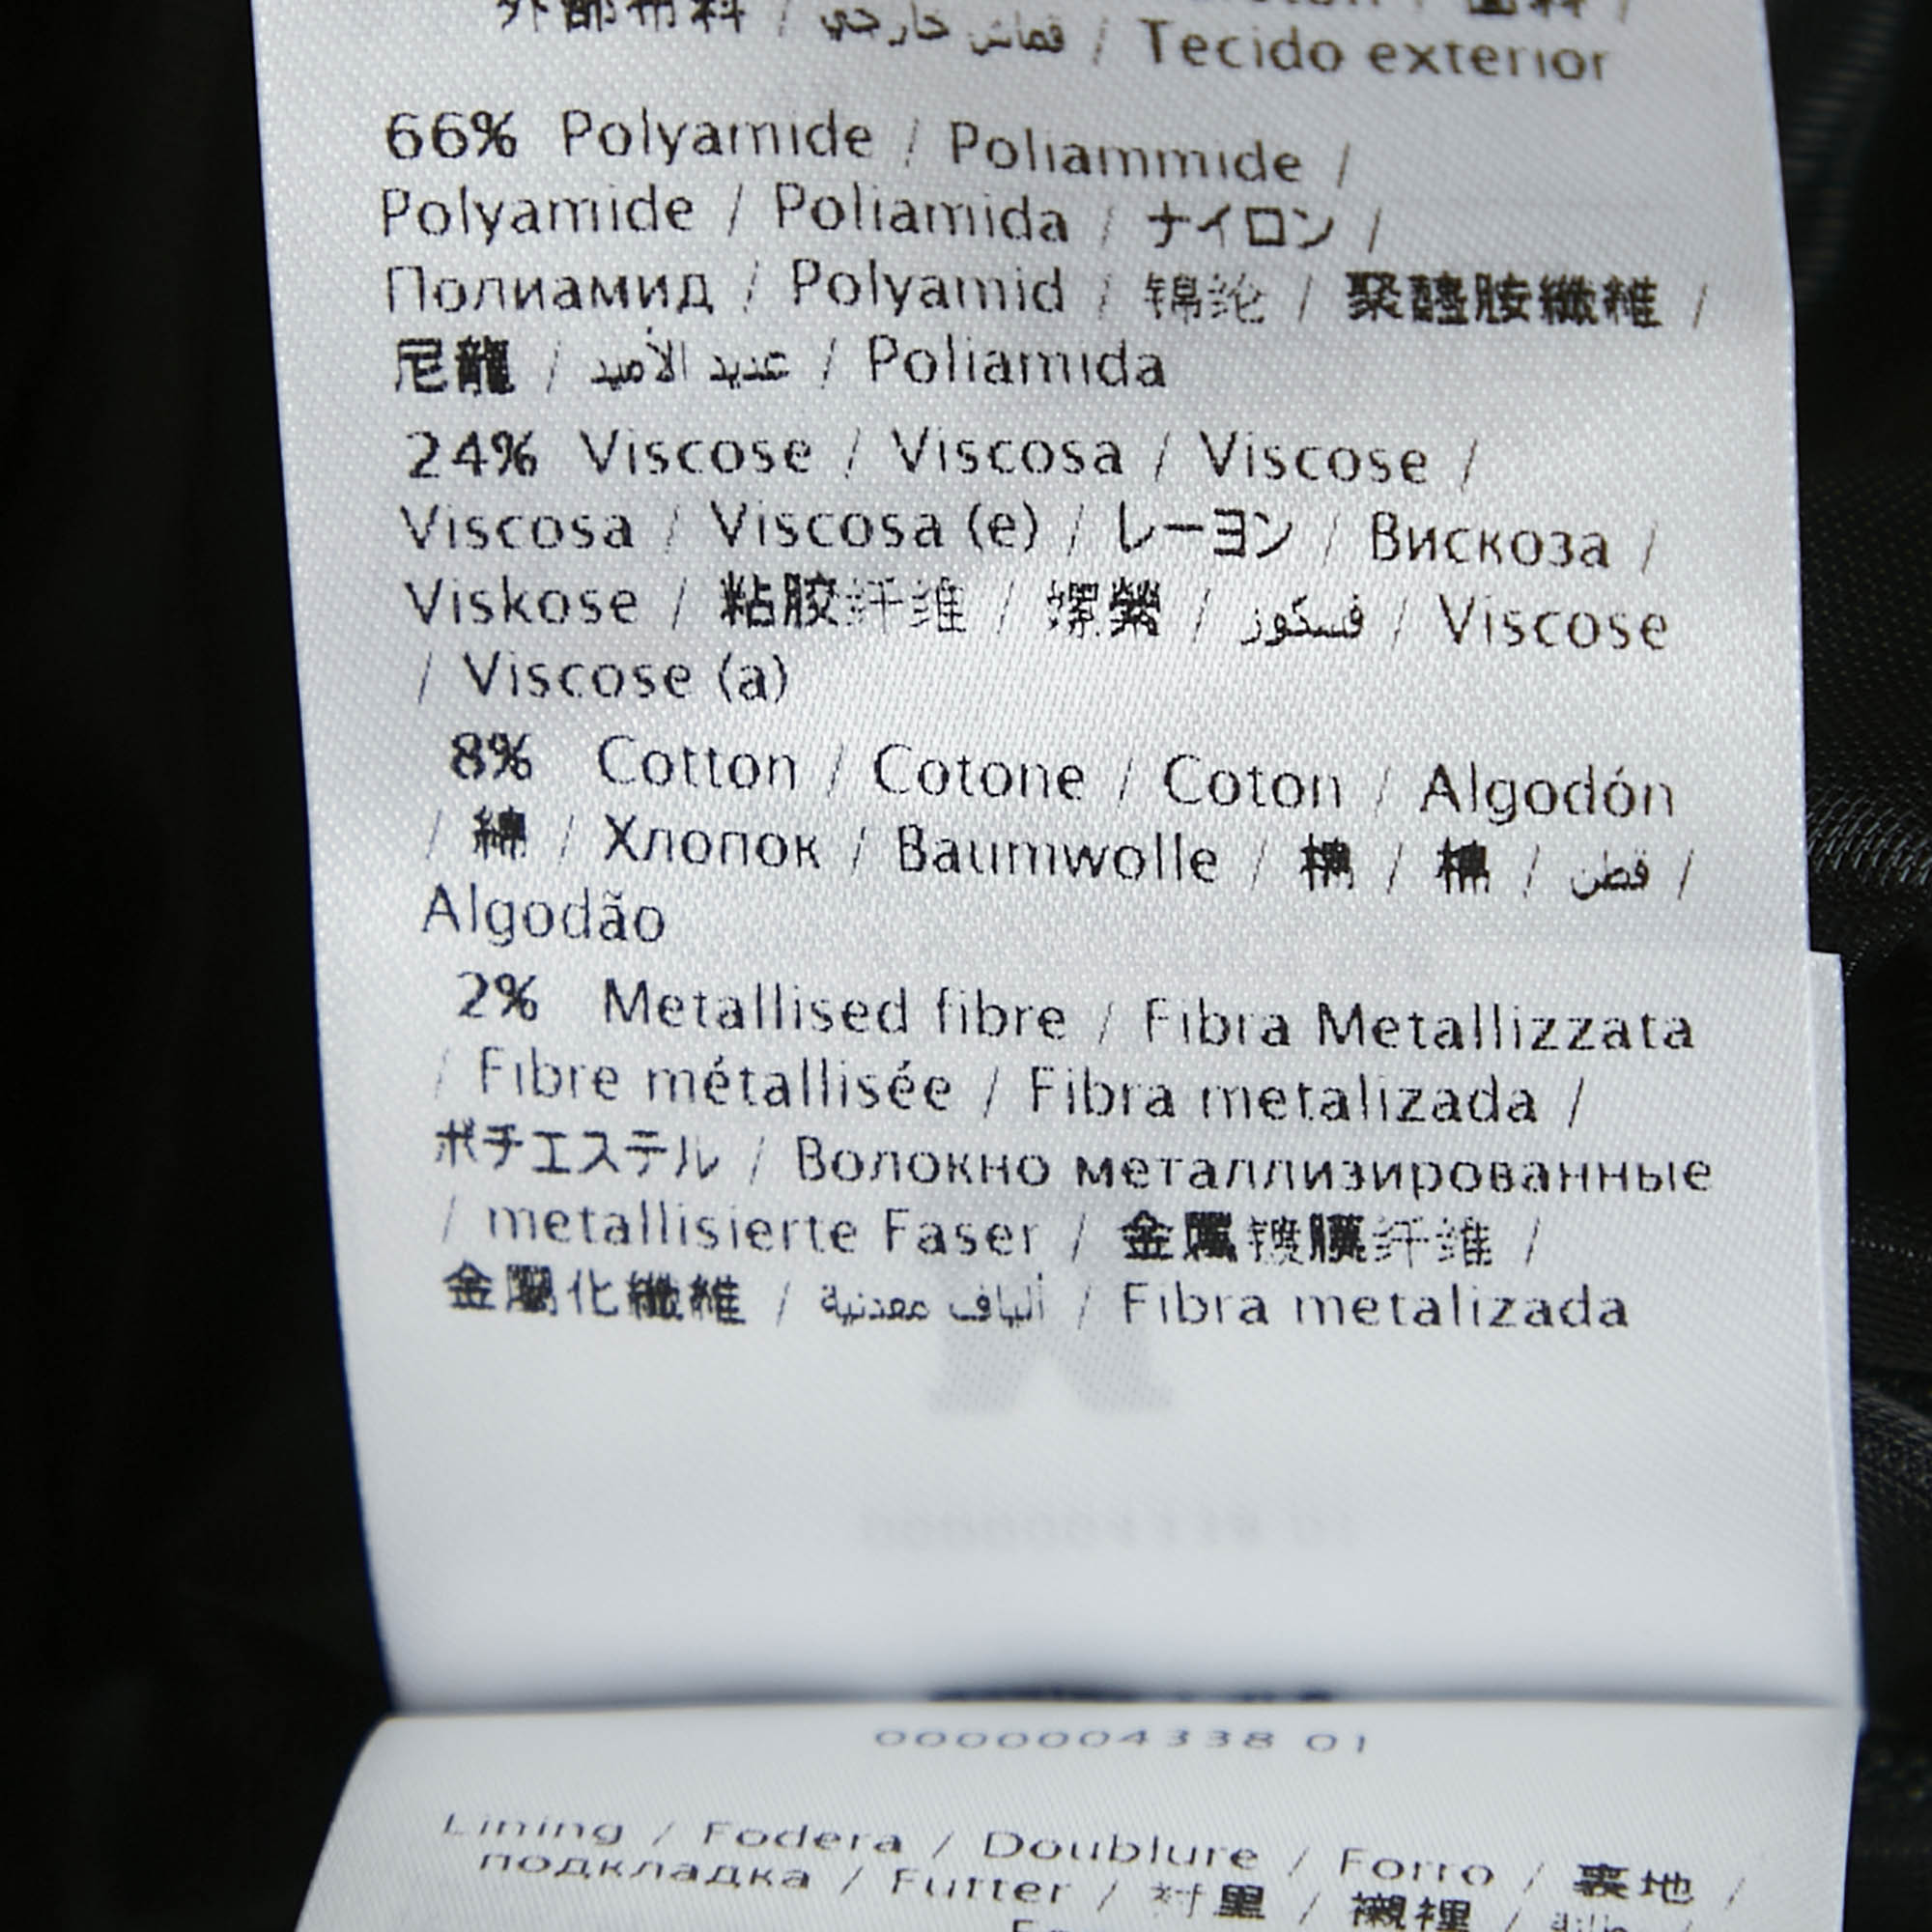 外部布料 / قماش خارجي / Tecido exterior
66% Polyamide / Poliammide /
Polyamide / Poliamida / ナイロン /
Полиамид / Polyamid / 锦纶 / 聚醯胺纖維 /
尼龍 / عديد الأميد / Poliamida
24% Viscose / Viscosa / Viscose /
Viscosa / Viscosa (e) / レーヨン / Вискоза /
Viskose / 粘胶纤维 / 嫘縈 / فسكوز / Viscose
/ Viscose (a)
8% Cotton / Cotone / Coton / Algodón
/ 綿 / Хлопок / Baumwolle / 棉 / 棉 / قطن /
Algodão
2% Metallised fibre / Fibra Metallizzata
/ Fibre métallisée / Fibra metalizada /
ポチエステル / Волокно металлизированные
/ metallisierte Faser / 金属镀膜纤维 /
金屬化纖維 / ألياف معدنية / Fibra metalizada
0000004338 01
Lining / Fodera / Doublure / Forro / 裏地 /
подкладка / Futter / 衬里 / 襯裡 /